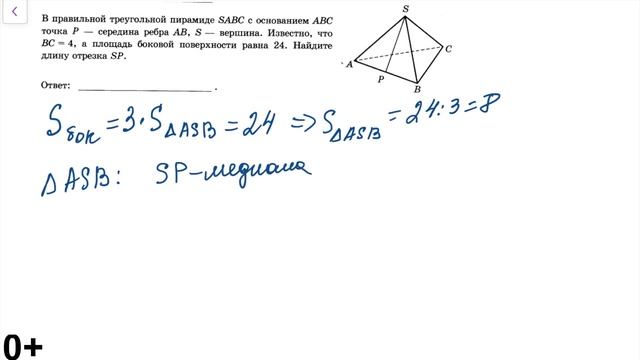 В правильной треугольной пирамиде SABC с основанием ABC
точка P — середина ребра AB, S — вершина. Известно, что
BC = 4, а площадь боковой поверхности равна 24. Найдите
длину отрезка SP.
Ответ: ______________________ .
S
C
A
P
B
Sбок = 3·S△ASB = 24 => S△ASB = 24:3 = 8
△ASB: SP-медиана
0+